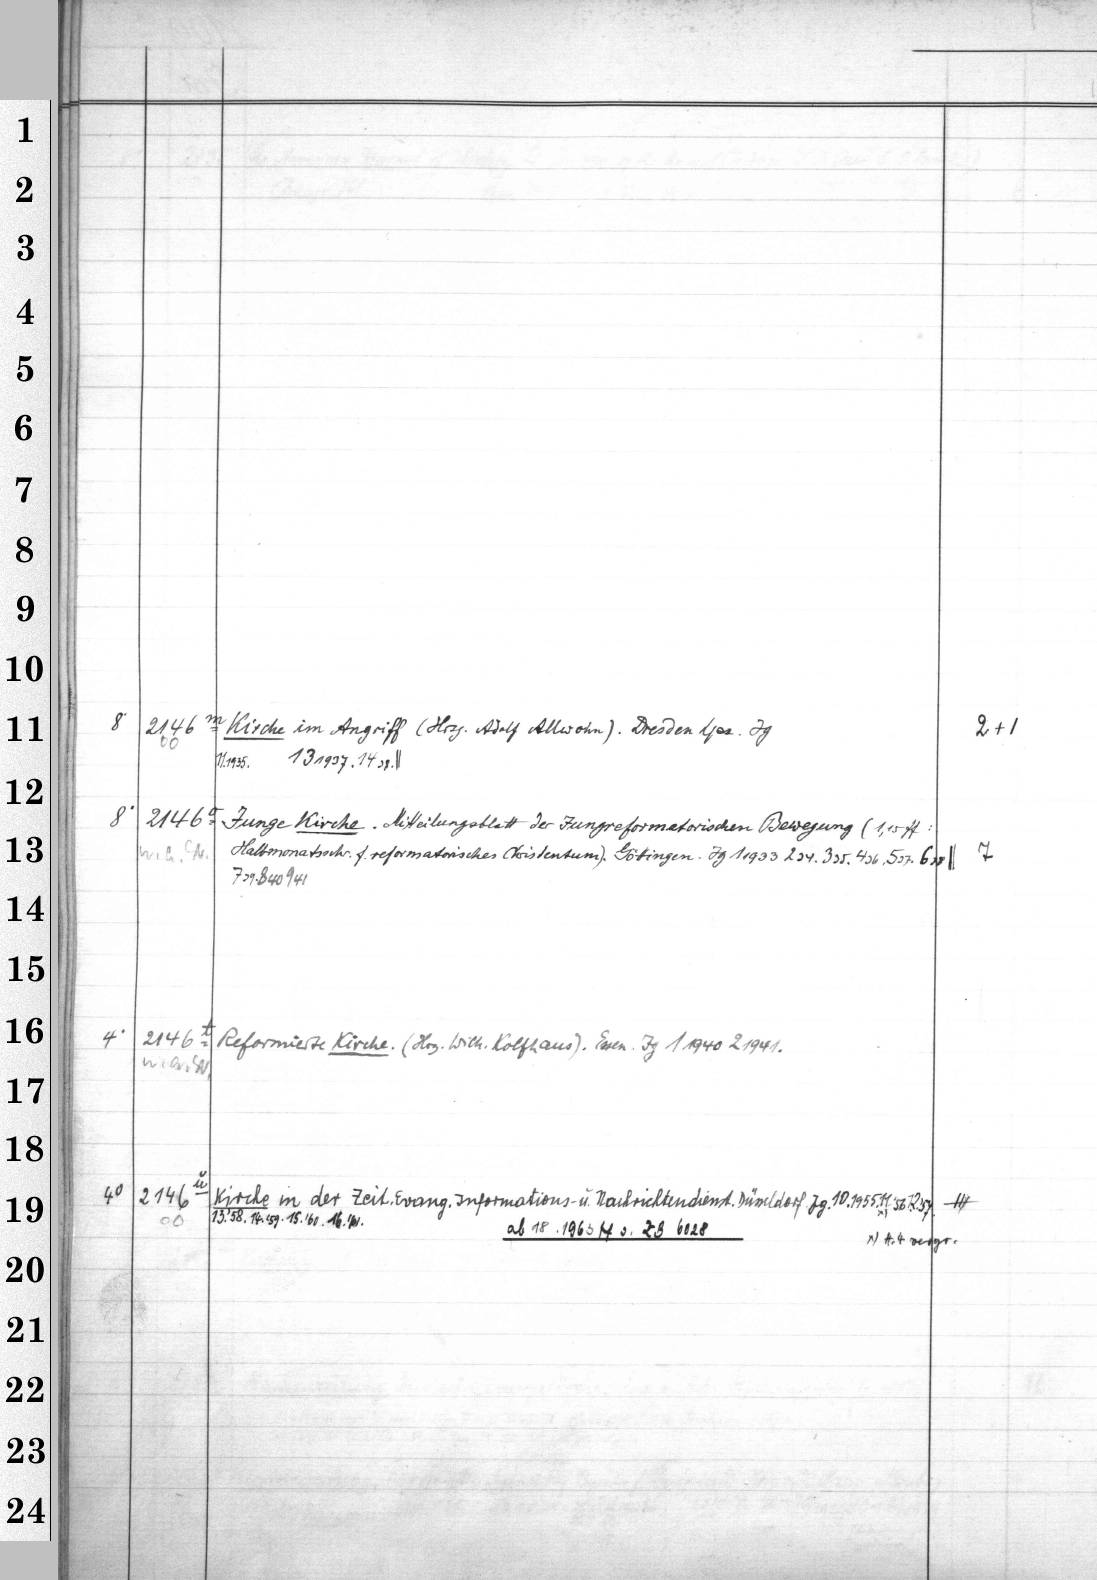 1
2
3
4
5
6
7
8
9
10
11
12
13
14
15
16
17
18
19
20
21
22
23
24
8° 2146 m Kirche im Angriff (Hrsg. Adolf Allwohn). Dresden Jg 2+1
00 11.1935. 13 1937. 14 38.||
8° 2146 Junge Kirche. Mitteilungsblatt der Jungreformatorischen Bewegung (1,15 ff:
Halbmonatsschr. f. reformatorisches Christentum). Göttingen. Jg 1 1933 2 34. 3 35. 4 36. 5 37. 6 38 || 7
7 39. 8 40 9 41
4° 2146 t Reformierte Kirche. (Hrsg. Wilh. Kolfhaus). Essen. Jg 1 1940 2 1941.
4° 2146 ü Kirche in der Zeit. Evang. Informations- u. Nachrichtendienst. Düsseldorf Jg. 10.1955. 11 56. 12. 57.
00 13.'58. 14.'59. 15.'60. 16.'61.
ab 18.1963 ff s. ZB 6028
x) H. 4 vergr.